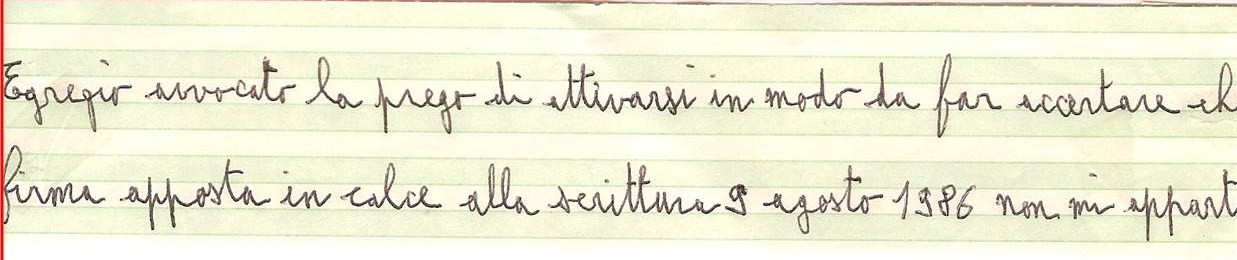 Egregio avvocato la prego di attivarsi in modo da far accertare ch
firma apposta in calce alla scrittura 9 agosto 1986 non mi appart